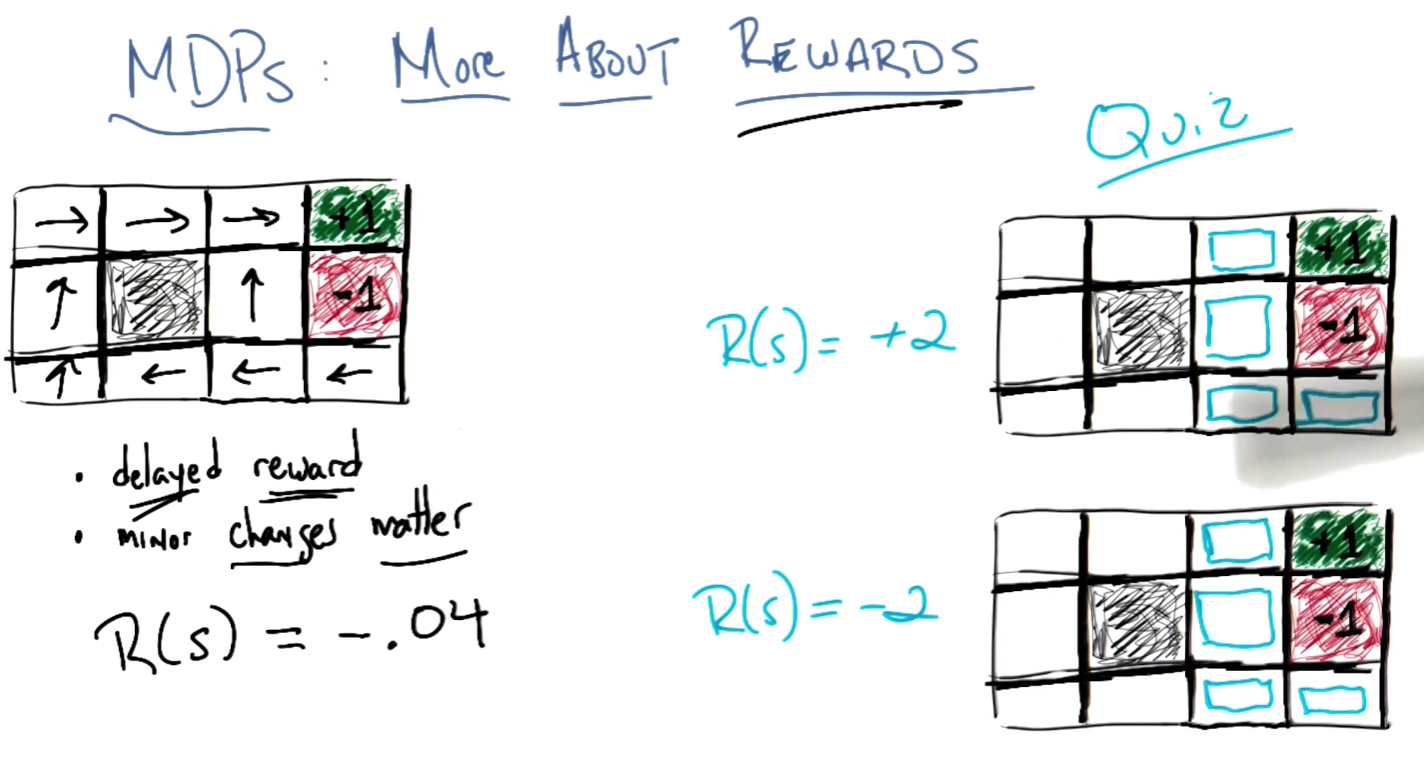 MDPs: More About Rewards
Quiz
→ → → +1
↑ ↑ -1
↑ ← ← ←
+1
-1
R(s) = +2
• delayed reward
• minor changes matter
R(s) = -.04
+1
-1
R(s) = -2